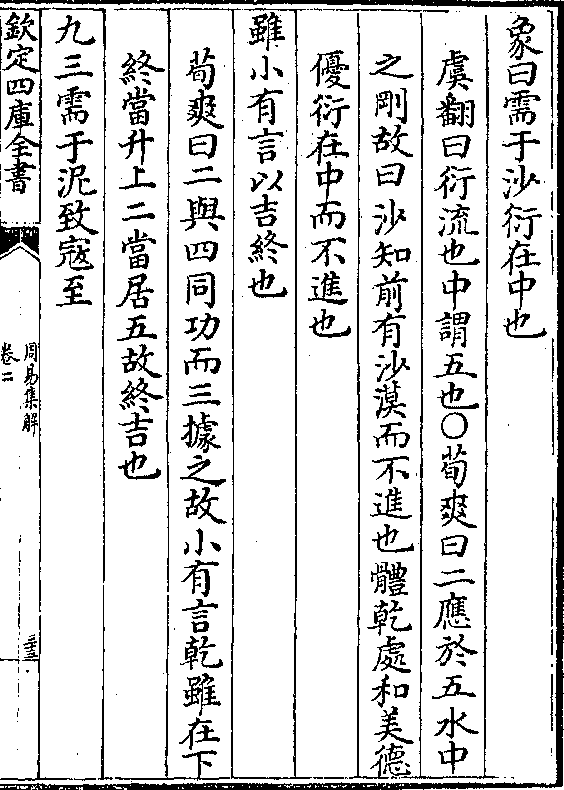 象曰需于沙衍在中也
虞翻曰衍流也中謂五也○荀爽曰二應於五水中
之剛故曰沙知前有沙漠而不進也體乾處和美德
優衍在中而不進也
雖小有言以吉終也
荀爽曰二與四同功而三據之故小有言乾雖在下
終當升上二當居五故終吉也
九三需于泥致寇至
欽定四庫全書
周易集解
卷二